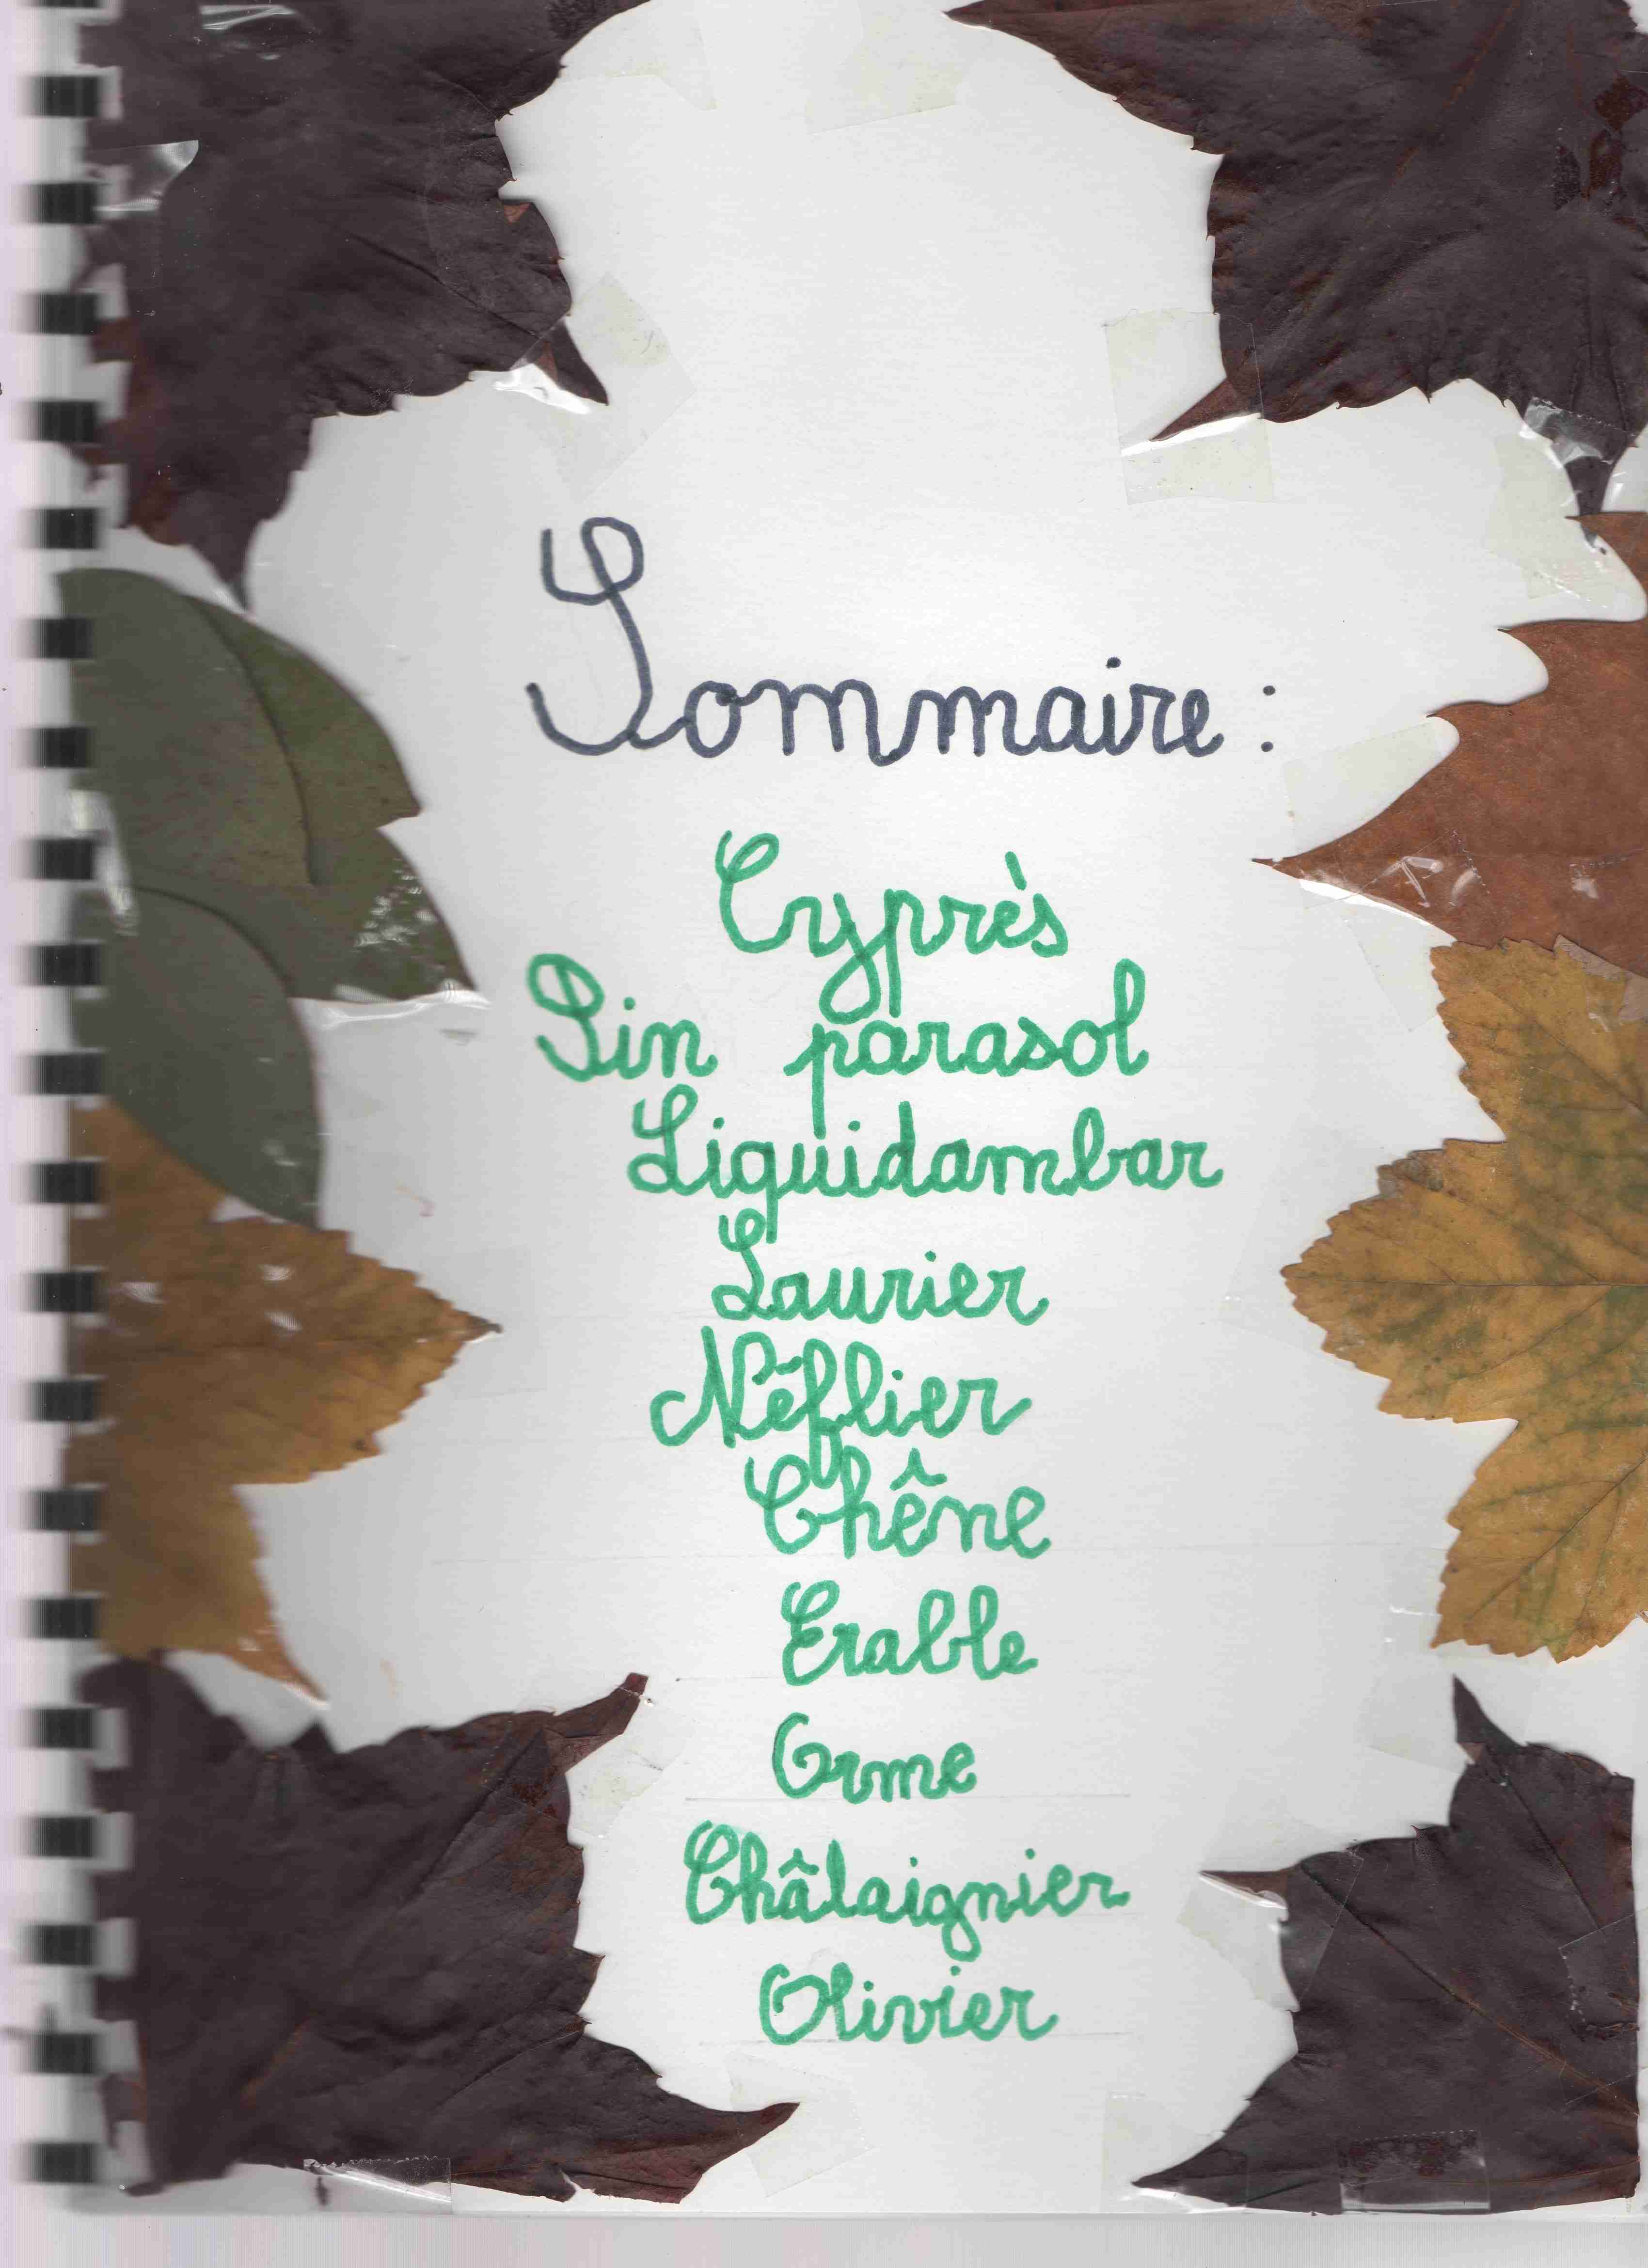 Sommaire :
Cyprès
Pin parasol
Liquidambar
Laurier
Néflier
Chêne
Erable
Orme
Châtaignier
Olivier